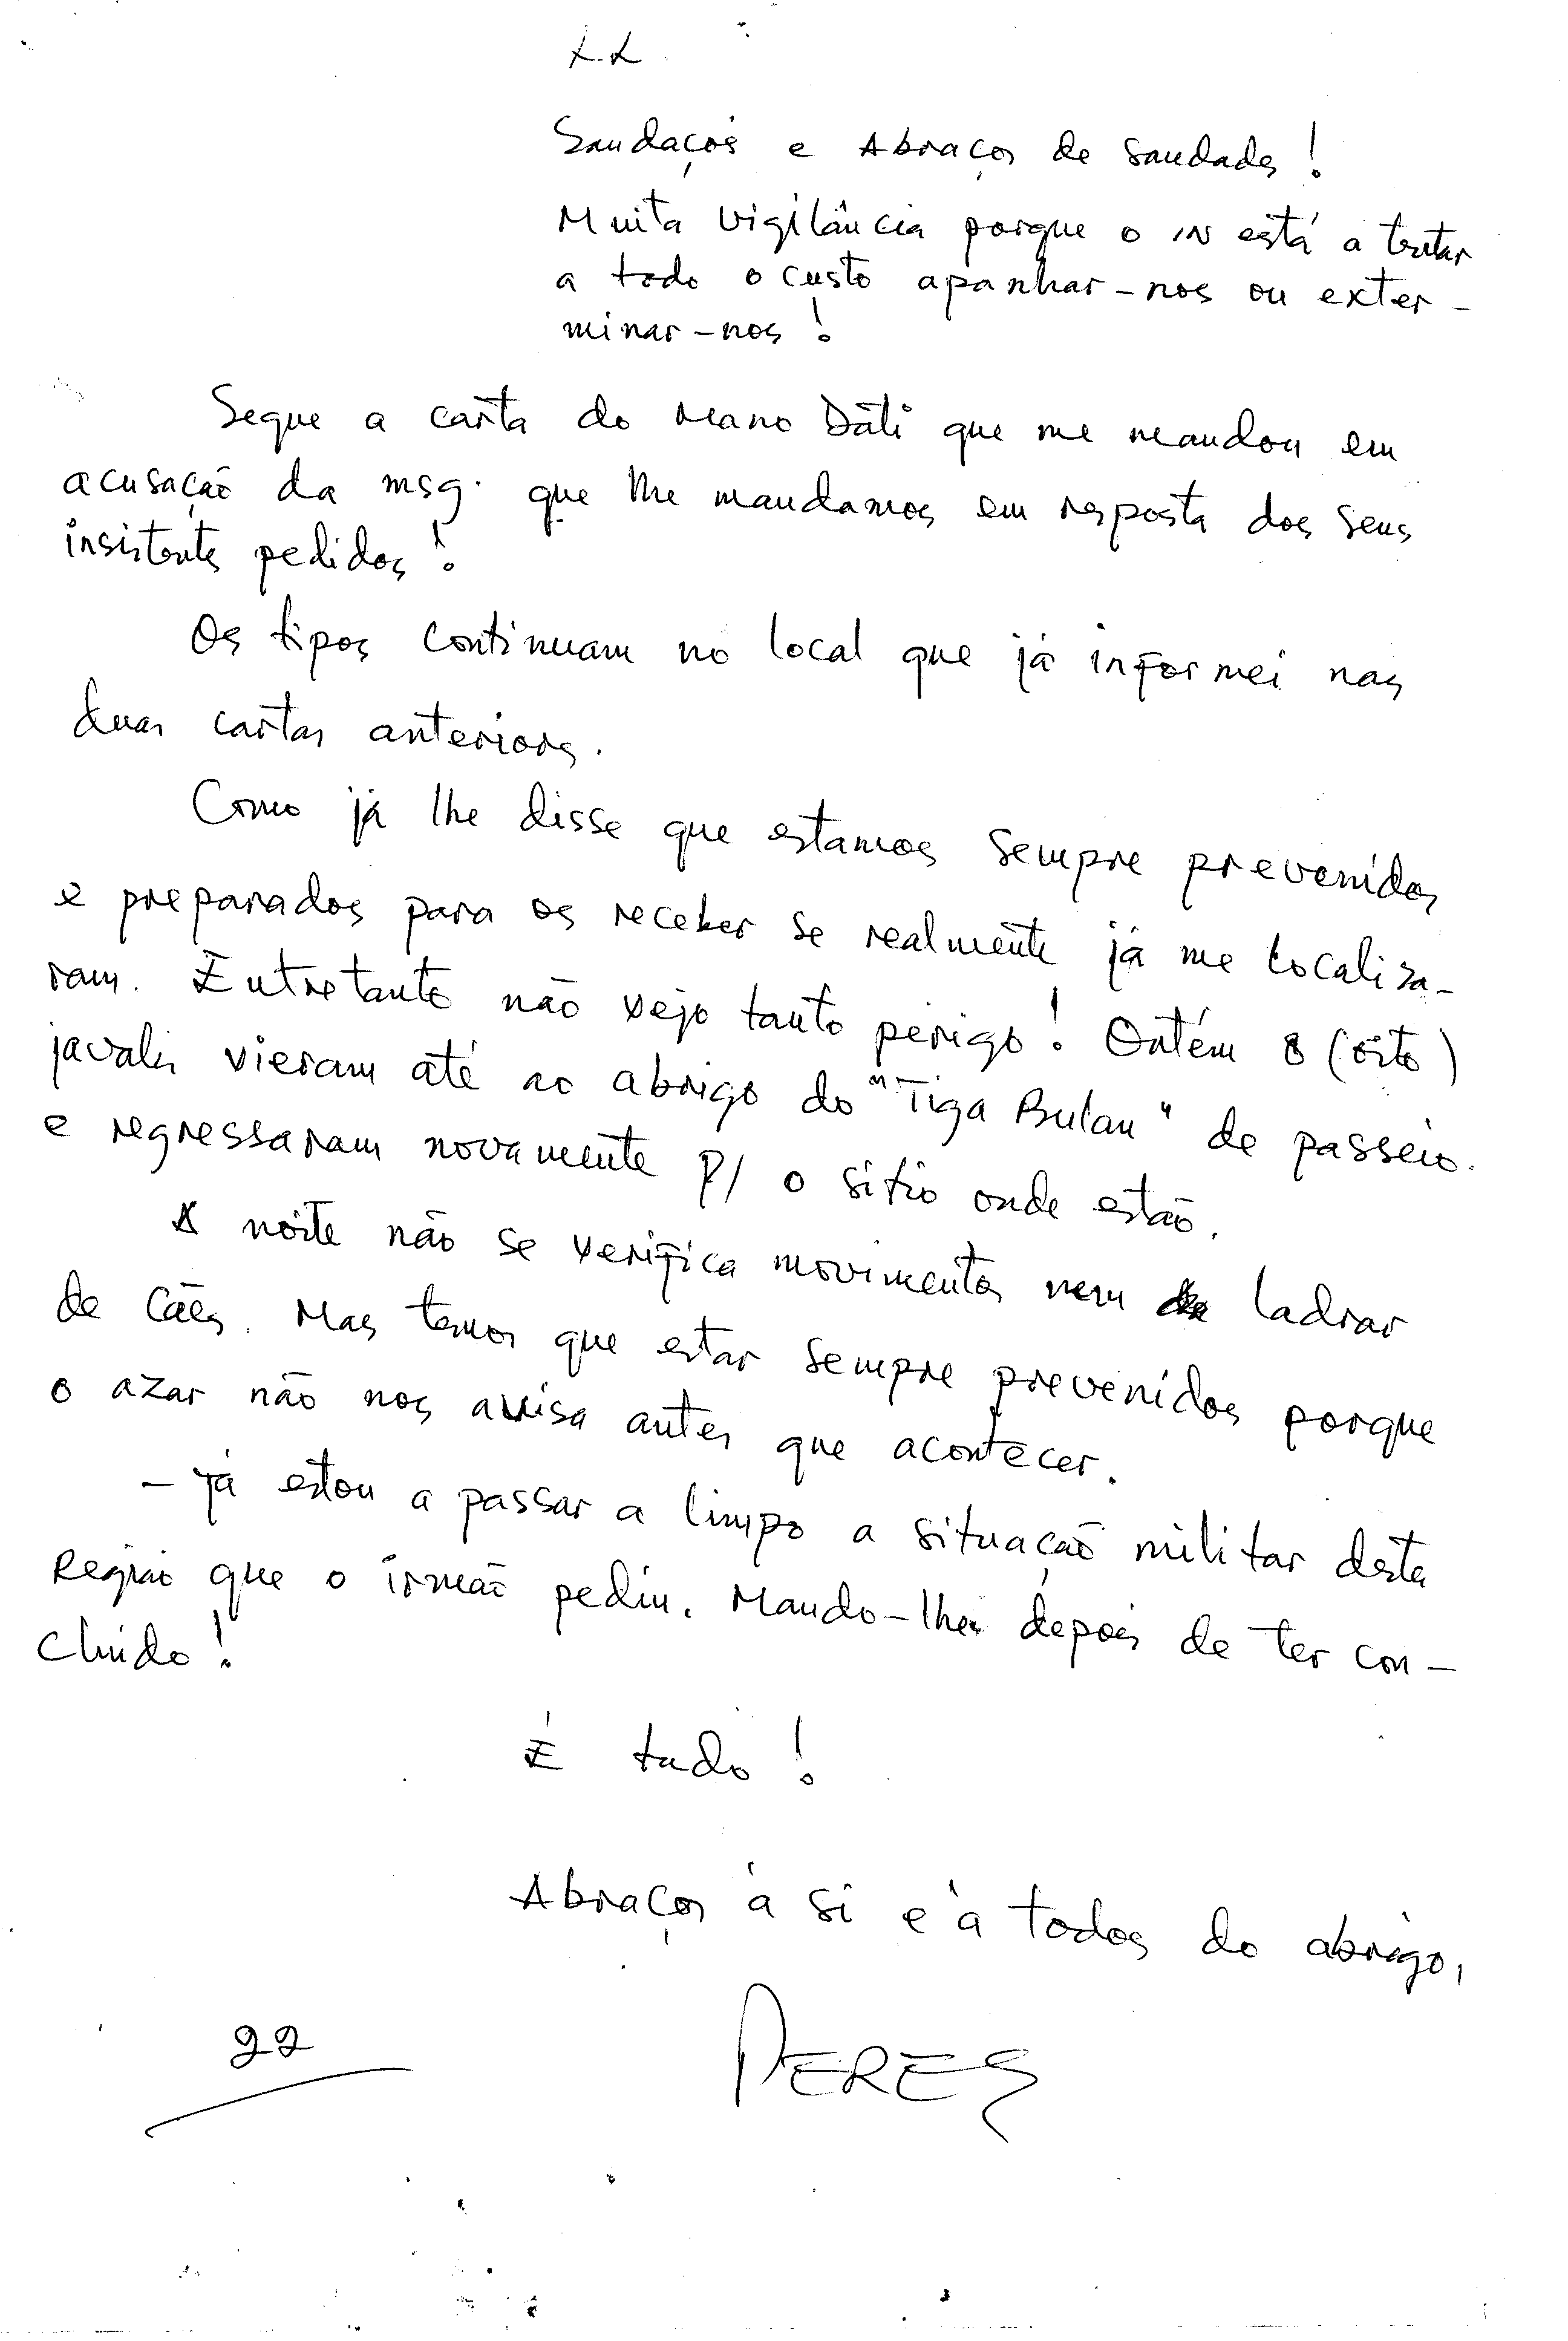 Saudações e Abraços de Saudades!
Muita vigilância porque o IN está a tentar
a todo o custo apanhar-nos ou exter-
minar-nos!
Segue a carta do Mano Dáti que me mandou em
acusação da msg. que lhe mandamos em resposta dos seus
insistentes pedidos!
Os tipos continuam no local que já informei nas
duas cartas anteriores.
Como já lhe disse que estamos sempre prevenidos
e preparados para os receber se realmente já me localiza-
ram. Entretanto não vejo tanto perigo! Ontém 8 (oito)
javalis vieram até ao abrigo do "Tiga Bulan" de passeio
e regressaram novamente p/ o sítio onde estão.
A noite não se verifica movimentos nem de ladrar
de cães. Mas temos que estar sempre prevenidos porque
o azar não nos avisa antes que acontecer.
- Já estou a passar a limpo a situação militar desta
Região que o irmão pediu. Mando-lhe depois de ter con-
cluido!
É tudo!
Abraços à si e à todos do abrigo,
PERES
22